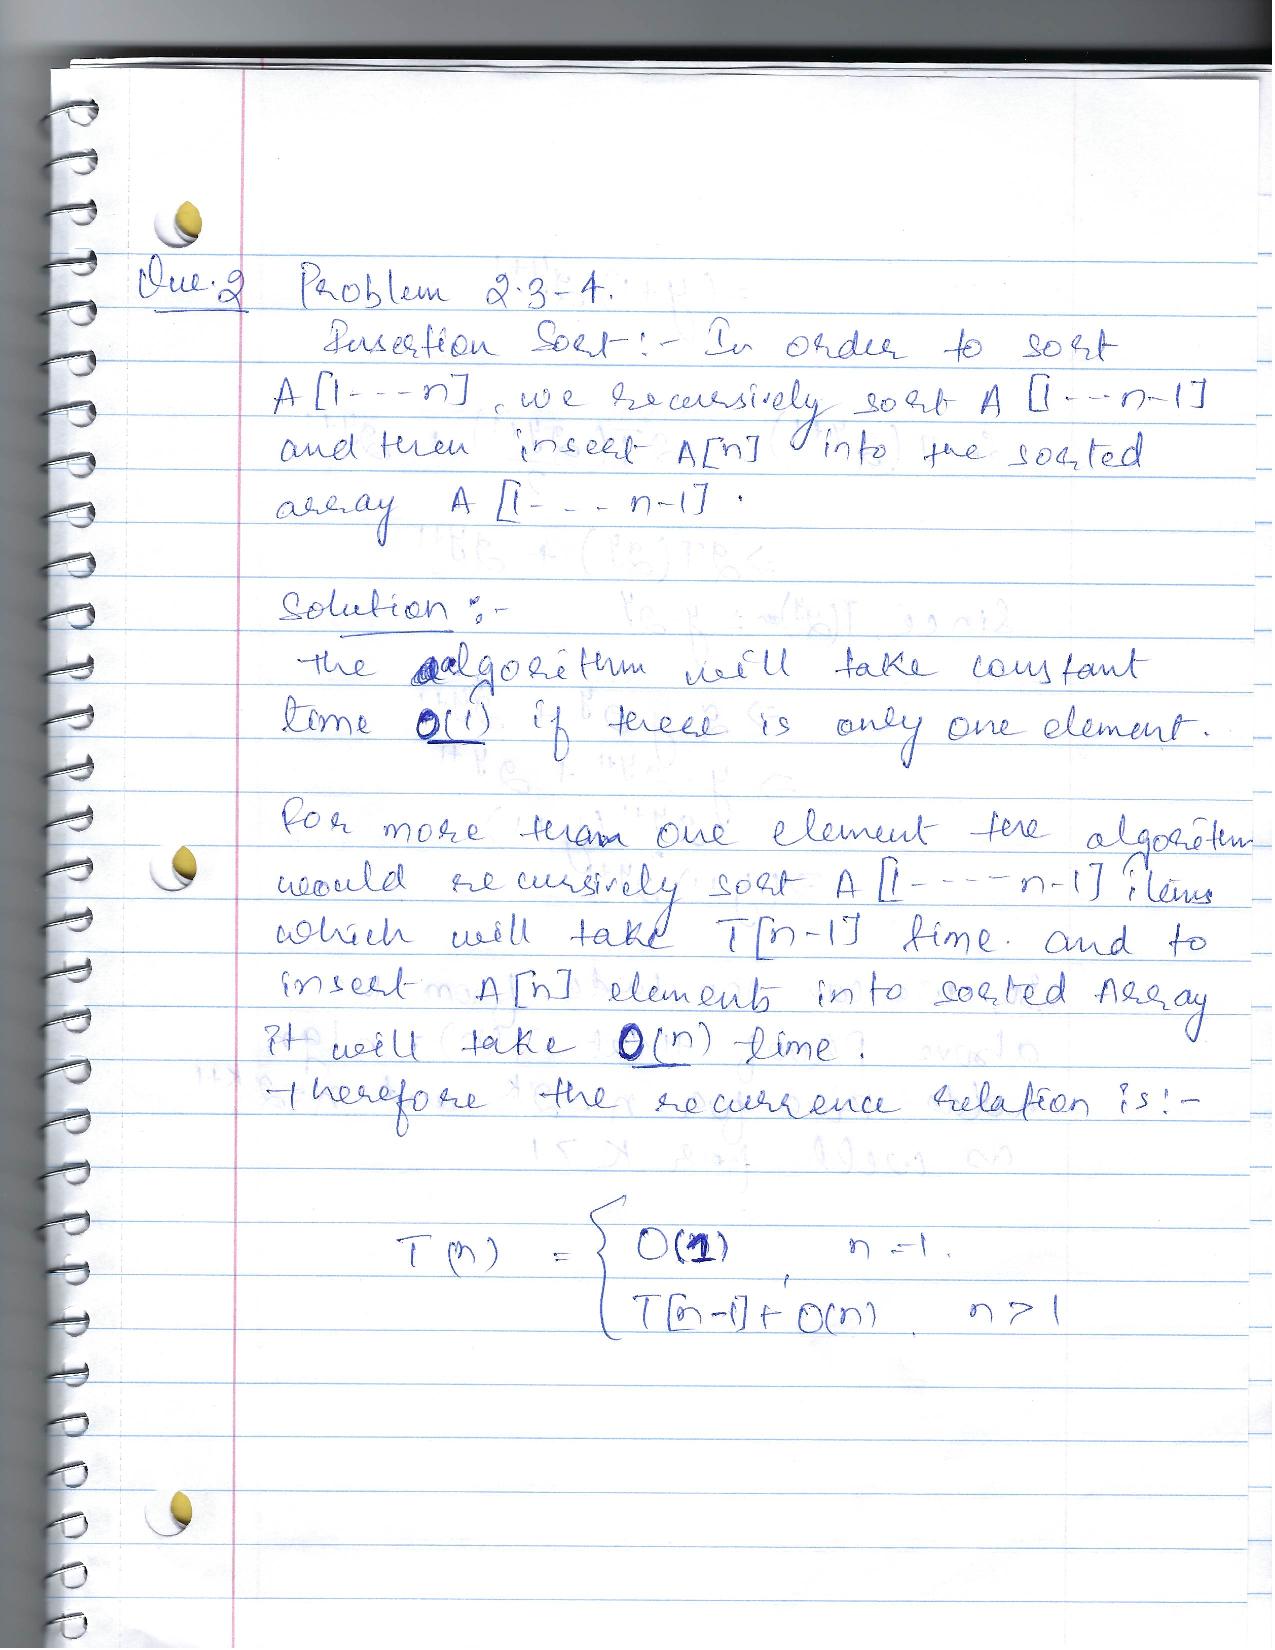 Que.2 Problem 2.3-4.
Insertion Sort:- In order to sort
A[1---n], we recursively sort A[1---n-1]
and then insert A[n] into the sorted
array A[1---n-1].
Solution:-
the algorithm will take constant
time O(1) if there is only one element.
For more than one element the algorithm
would recursively sort A[1----n-1] items
which will take T[n-1] time. and to
insert A[n] elements into sorted Array
it will take O(n) time.
Therefore the recurrence relation is:-
T(n) = { O(1) , n=1.
T[n-1]+O(n) . n>1